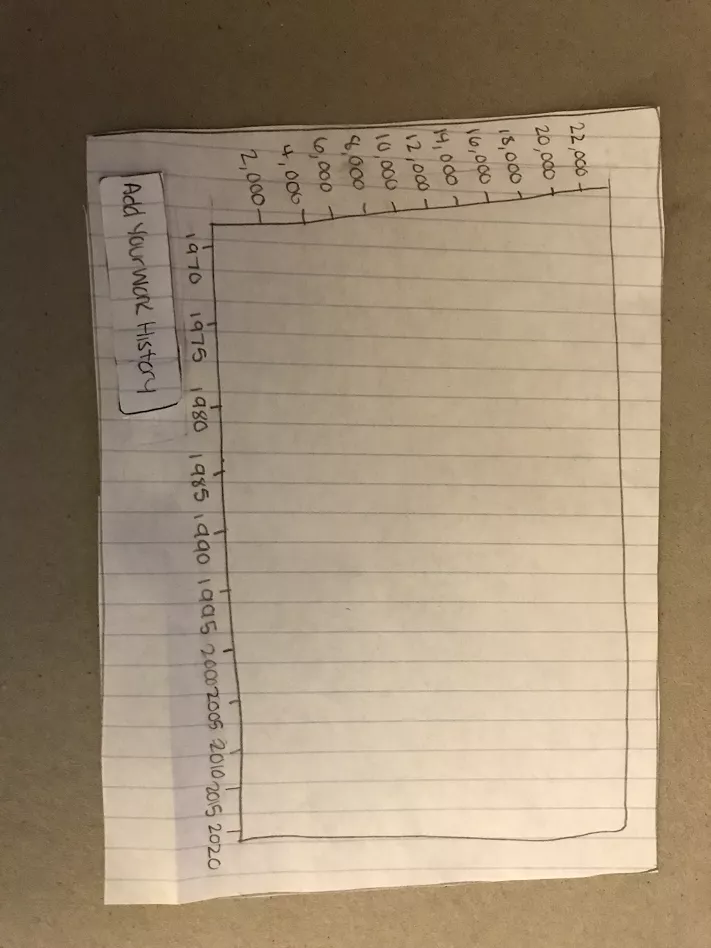 22,000
20,000
18,000
16,000
14,000
12,000
10,000
8,000
6,000
4,000
2,000
1970 1975 1980 1985 1990 1995 2000 2005 2010 2015 2020
Add Your Work History